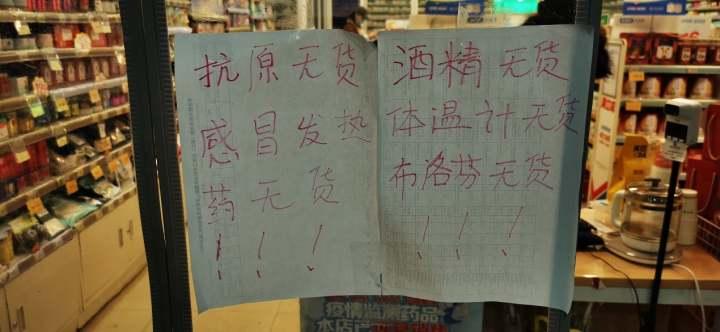 抗原无货
感冒发热
药无货
！！！
酒精无货
体温计无货
布洛芬无货
！！！
疫情监测药品